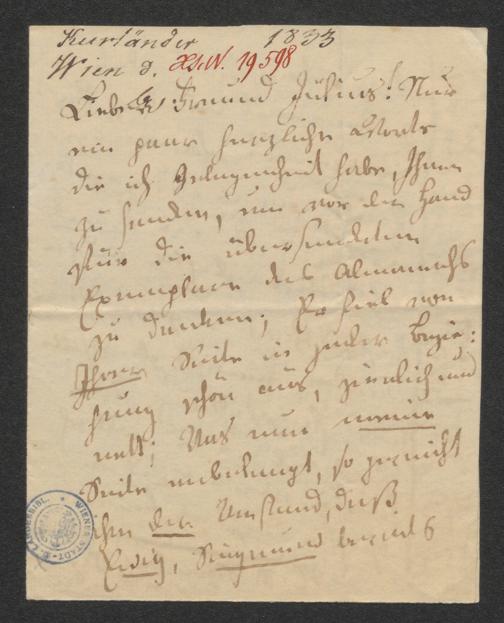 Kurländer 1833
Wien d. H.I.N. 19598
Liebster Freund Julius! Nur
ein paar herzliche Worte
die ich Gelegenheit habe, Ihnen
zu senden, um vor der Hand
für die übersendeten
Exemplare des Almanachs
zu danken; Er fiel von
Ihrer Seite in jeder Bezie:
hung schön aus, zierlich und
nett; Was nun meine
Seite anbelangt, so gereicht
ihm der Umstand, daß
Siegmund bereits
WIENER STADT- LANDESBIBL.